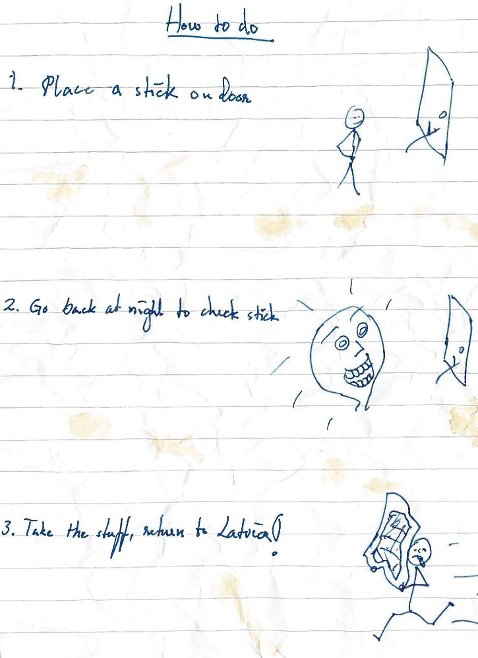 How to do
1. Place a stick on door
2. Go back at night to check stick
3. Take the stuff, return to Latvia!